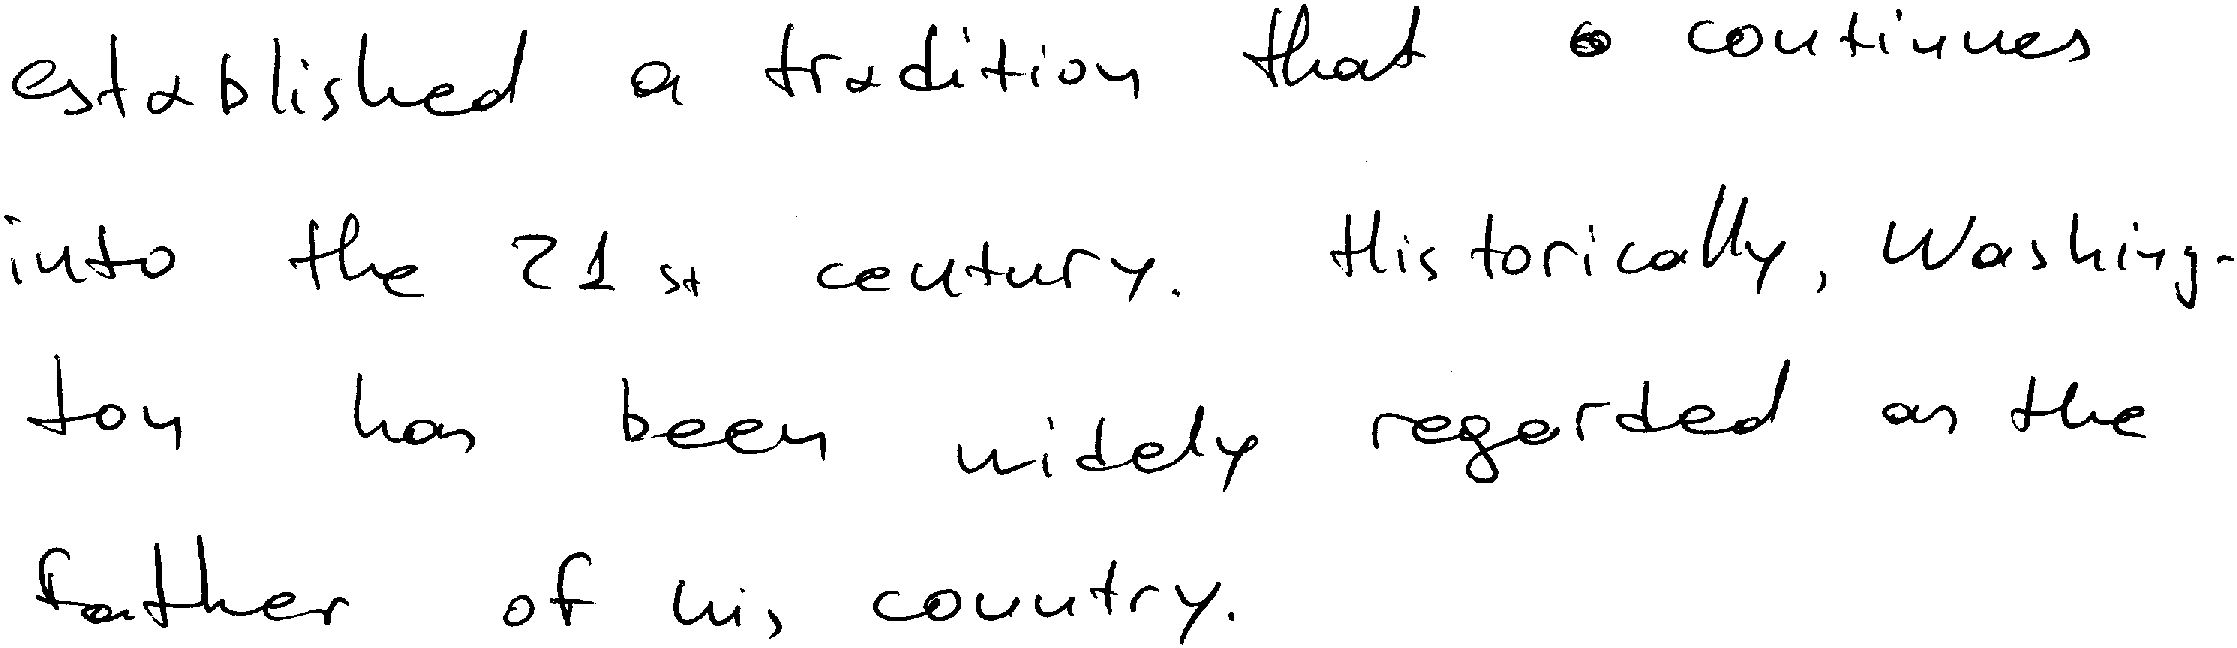 established a tradition that continues
into the 21st century. Historically, Washing-
ton has been widely regarded as the
father of his country.